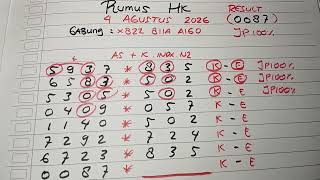 Rumus HK RESULT
4 AGUSTUS 2026 (0087)
GABUNG : XB22 B11A A160 JP100%
+ AS + K . INDX. N2
5 9 3 7 * 8 3 5 K - E JP100%
6 5 8 3 * 5 0 2 K - E JP100%
5 3 0 5 * 5 0 2 K - E JP100%
0 4 0 9 * 0 5 7 K - E
1 1 4 0 * 5 0 2 K - E
7 2 9 2 * 7 2 4 K - E
6 7 2 3 * 8 3 5 K - E
0 0 8 7 * K - E